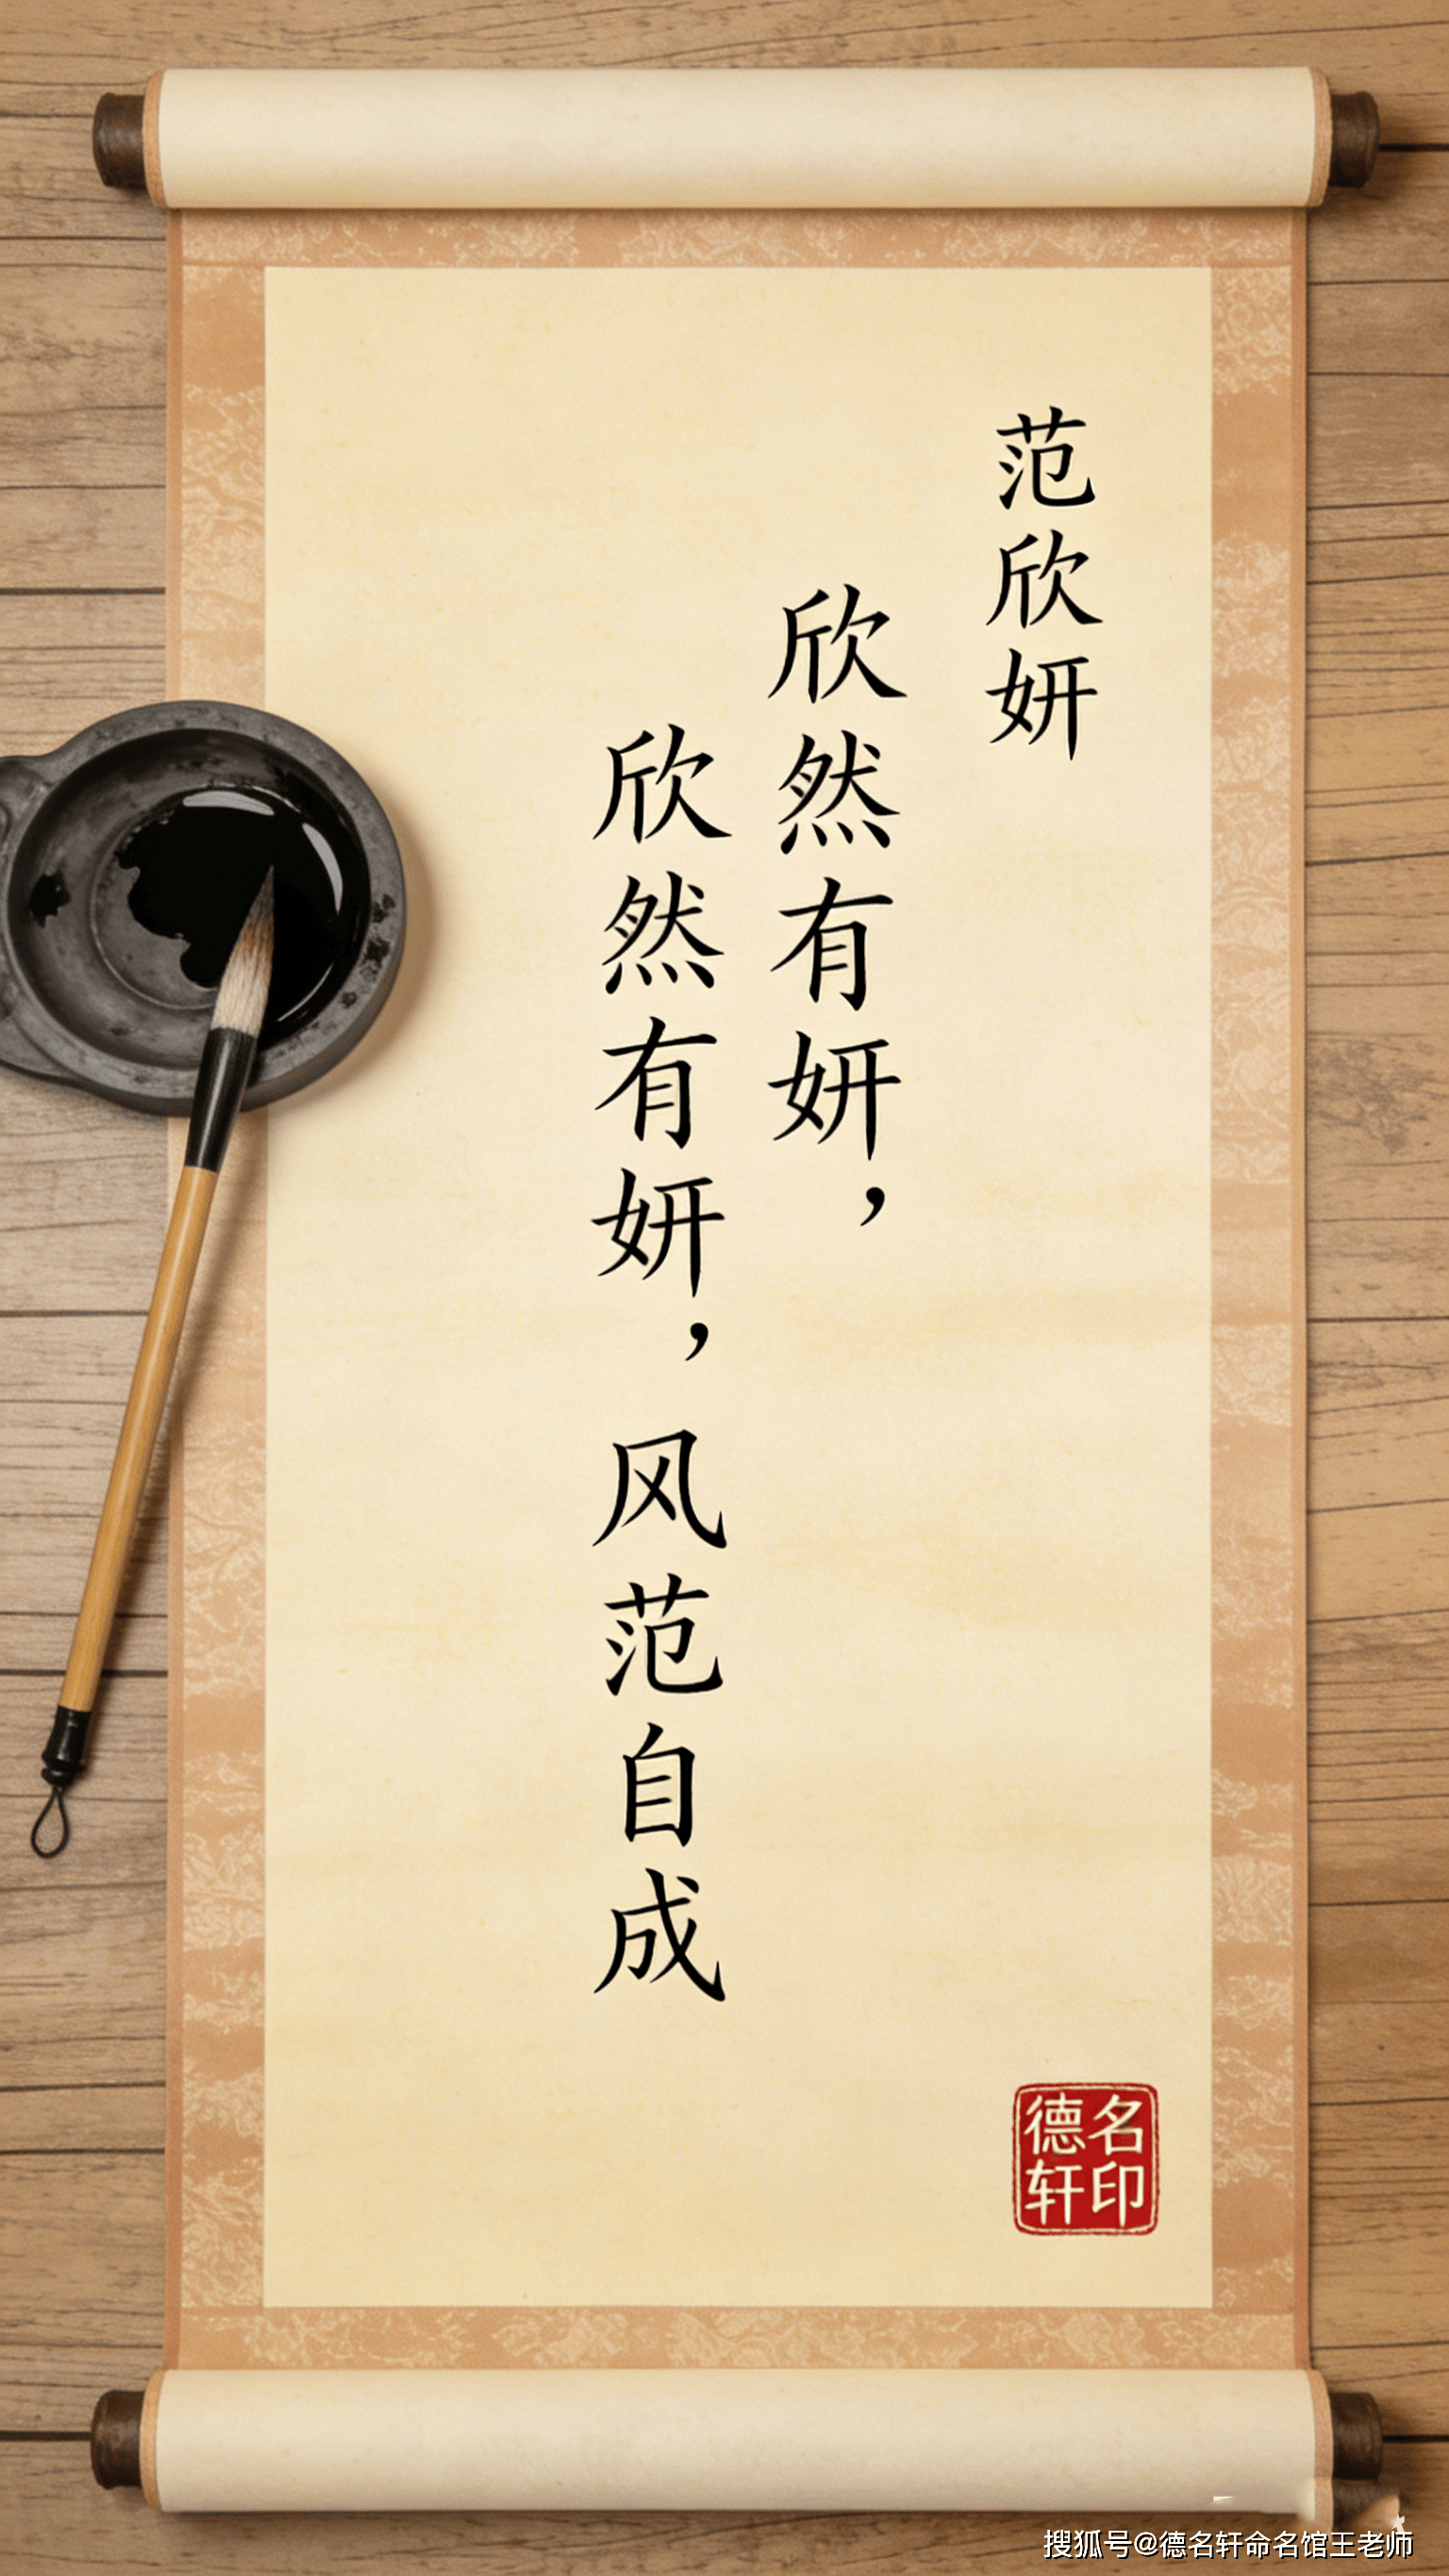 范欣妍
欣然有妍，
欣然有妍，风范自成
德名
轩印
搜狐号@德名轩命名馆王老师